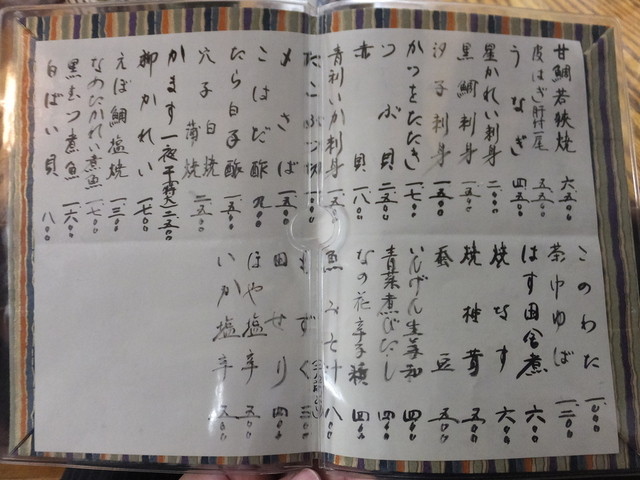 甘鯛若狭焼 六五〇〇
皮はぎ肝付一尾 五五〇〇
うなぎ 四五〇〇
星かれい刺身 二〇〇〇
黒鯛刺身 一五〇〇
汐子刺身 一五〇〇
かつをたたき 一七〇〇
つぶ貝 二五〇〇
赤貝 一八〇〇
青利いか刺身 一五〇〇
〆さば 一五〇〇
こはだ酢 九〇〇
たら白子酢 一五〇〇
穴子白焼 蒲焼 二五〇〇
かます一夜干 二五〇〇
柳かれい 一七〇〇
えぼ鯛塩焼 一三〇〇
なめたかれい煮魚 一七〇〇
黒むつ煮魚 一六〇〇
白ばい貝 八〇〇
このわた 一〇〇〇
茶巾ゆば 一二〇〇
はす田舎煮 六〇〇
焼なす 六〇〇
焼椎茸 五〇〇
蚕豆 五〇〇
いんげん生姜和 四〇〇
青菜煮びたし 四〇〇
なの花辛子穐 四〇〇
魚みそ汁 八〇〇
もずく 三〇〇
田せり 四〇〇
ほや塩辛 五〇〇
いか塩辛 五〇〇